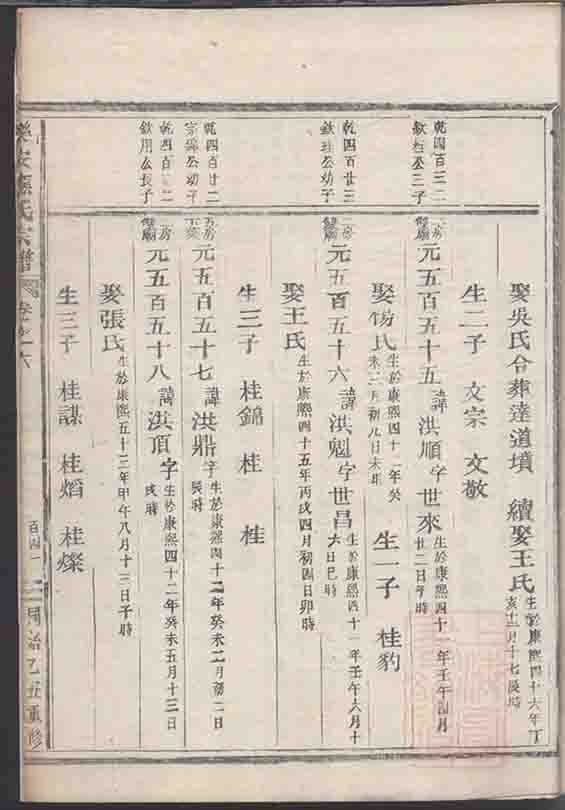 娶吳氏合葬達道墳 續娶王氏 生於康熙四十六年丁亥十二月十七辰時
生二子 文宗 文敬
乾四百三二 欽柱公三子
元五百五十五 諱洪順字世來 生於康熙四十一年壬午四月廿二日子時
娶楊氏 生於康熙四十二年癸未三月初八日未時 生一子 桂豹
乾四百廿三 欽柱公幼子
二房 元五百五十六 諱洪魁字世昌 生於康熙四十一年壬午六月十六日巳時
娶王氏 生於康熙四十五年丙戌四月初四日卯時
生三子 桂錦 桂 桂
乾四百廿二 公幼子
房 元五百五十七 諱洪鼎字 生於康熙四十二年癸未二月初二日辰時
乾四百二 欽用公長子
房 元五百五十八 諱洪頂字 生於康熙四十二年癸未五月十三日戌時
娶張氏 生於康熙五十三年甲午八月十三日子時
生三子 桂謀 桂熖 桂燦
氏宗譜 卷 六 百四 同治乙丑重修